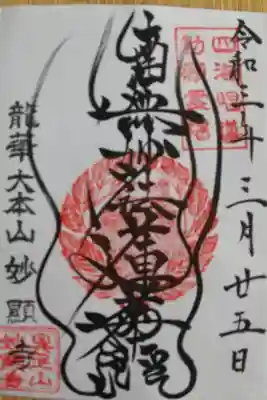 四海唱導
勅願霊跡
令和三年三月廿五日
南無妙法蓮華経
龍華大本山妙顯寺